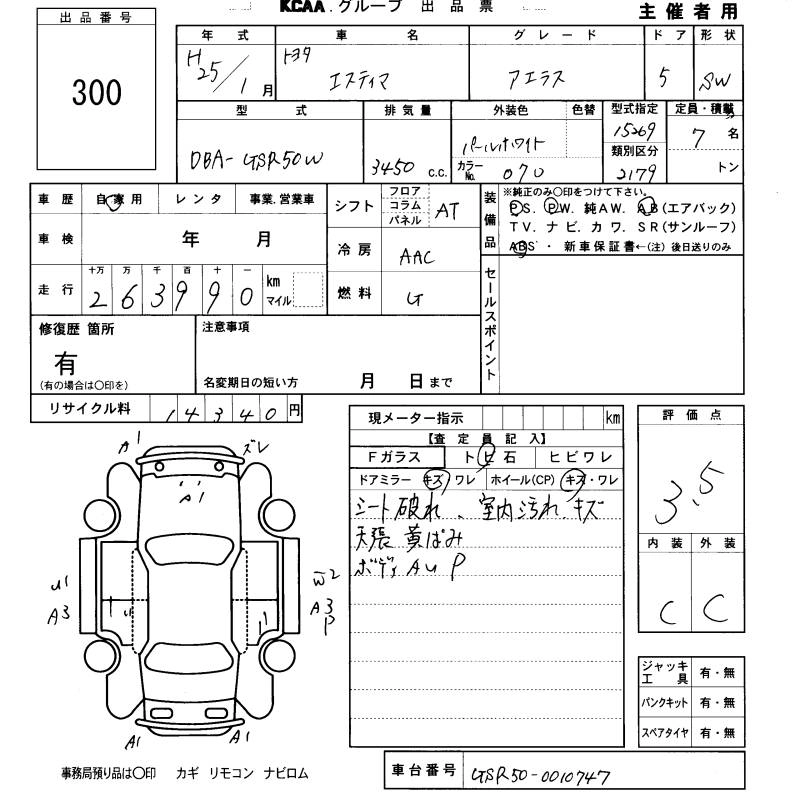 KCAA.グループ 出品票
主催者用
出品番号
300
年式 車名 グレード ドア 形状
H25/1月 トヨタ エスティマ アエラス 5 SW
型式 排気量 外装色 色替 型式指定 定員・積載
DBA-GSR50W 3450 c.c. パールホワイト 15269 7名
カラーNo. 070 類別区分 2179 トン
車歴 自家用 レンタ 事業.営業車
車検 年 月
走行 十万 万 千 百 十 一 km マイル
263990
シフト フロア コラム パネル AT
冷房 AAC
燃料 G
装備品 ※純正のみ○印をつけて下さい。
P.S. P.W. 純AW. AB(エアバック)
TV. ナビ. カワ. SR(サンルーフ)
ABS・ 新車保証書←(注)後日送りのみ
セールスポイント
修復歴 箇所
有
(有の場合は○印を)
注意事項
名変期日の短い方 月 日まで
リサイクル料 14340円
現メーター指示 km
【査定員記入】
Fガラス トビ石 ヒビワレ
ドアミラー キズ・ワレ ホイール(CP) キズ・ワレ
シート破れ、室内汚れ、キズ
天張 黄ばみ
ボディ AU P
評価点
3.5
内装 外装
C C
ジャッキ工具 有・無
パンクキット 有・無
スペアタイヤ 有・無
A1 ズレ
A1
U1 W2
A3 A3
P
A1 A1
事務局預り品は○印 カギ リモコン ナビロム
車台番号 GSR50-0010747